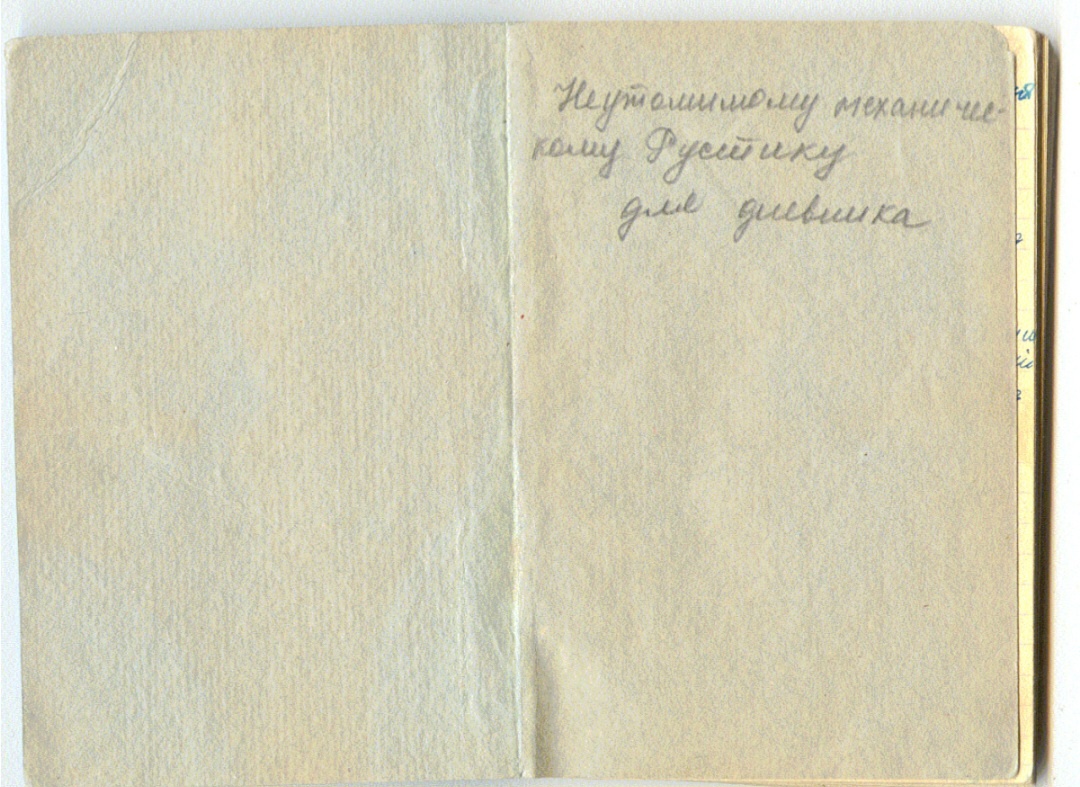 Неутомимому механичес-
кому Рустику
для дневника